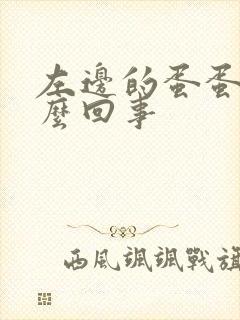 左邊的蛋蛋
麼回事
西風颯颯戰旗